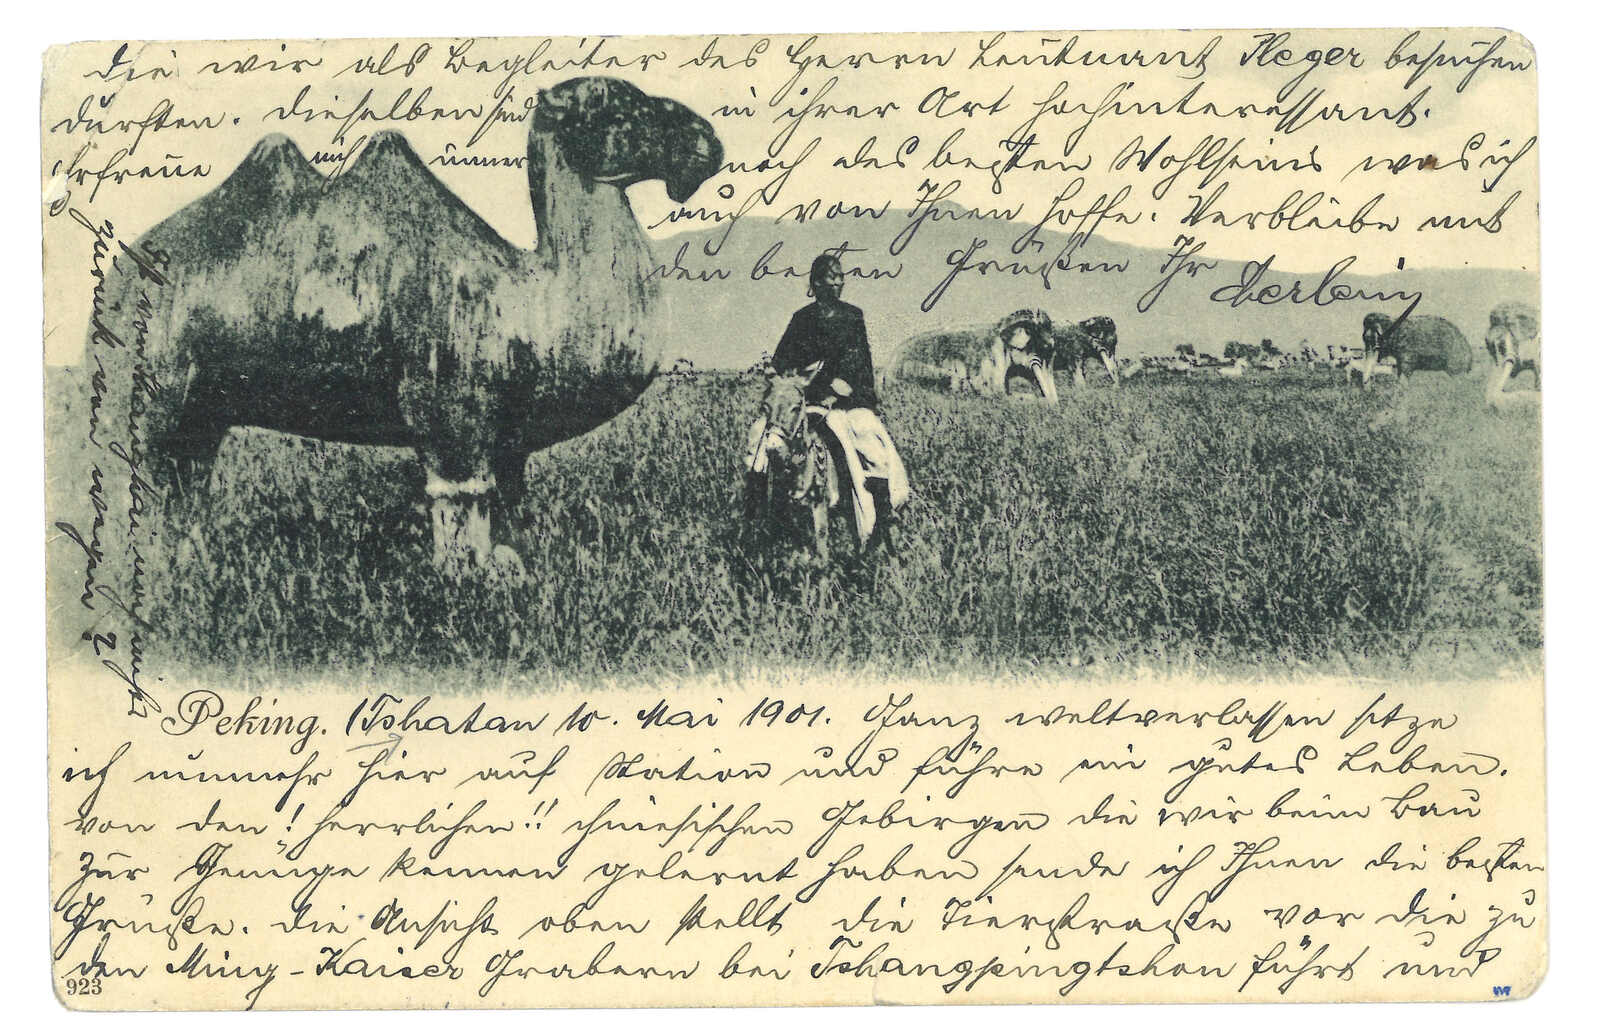 Peking. (Tshatan 10. Mai 1901. Ganz weltverlassen sitze
ich nunmehr hier auf Station und führe ein gutes Leben.
Von den! herrlichen!! chinesischen Gebirgen die wir beim Bau
zur Genüge kennen gelernt haben sende ich Ihnen die besten
Grüße. Die Ansicht oben stellt die Tierstraße vor die zu
den Ming-Kaiser Gräbern bei Tshangpingtshou führt und
923
die wir als Begleiter des Herrn Leutnant Pleger besuchen
durften. Dieselben sind in ihrer Art hochinteressant.
Erfreue mich immer noch des besten Wohlseins was ich
auch von Ihnen hoffe. Verbleibe mit
den besten Grüßen Ihr
Ist von Shanghai noch nichts
zurück von wegen ?